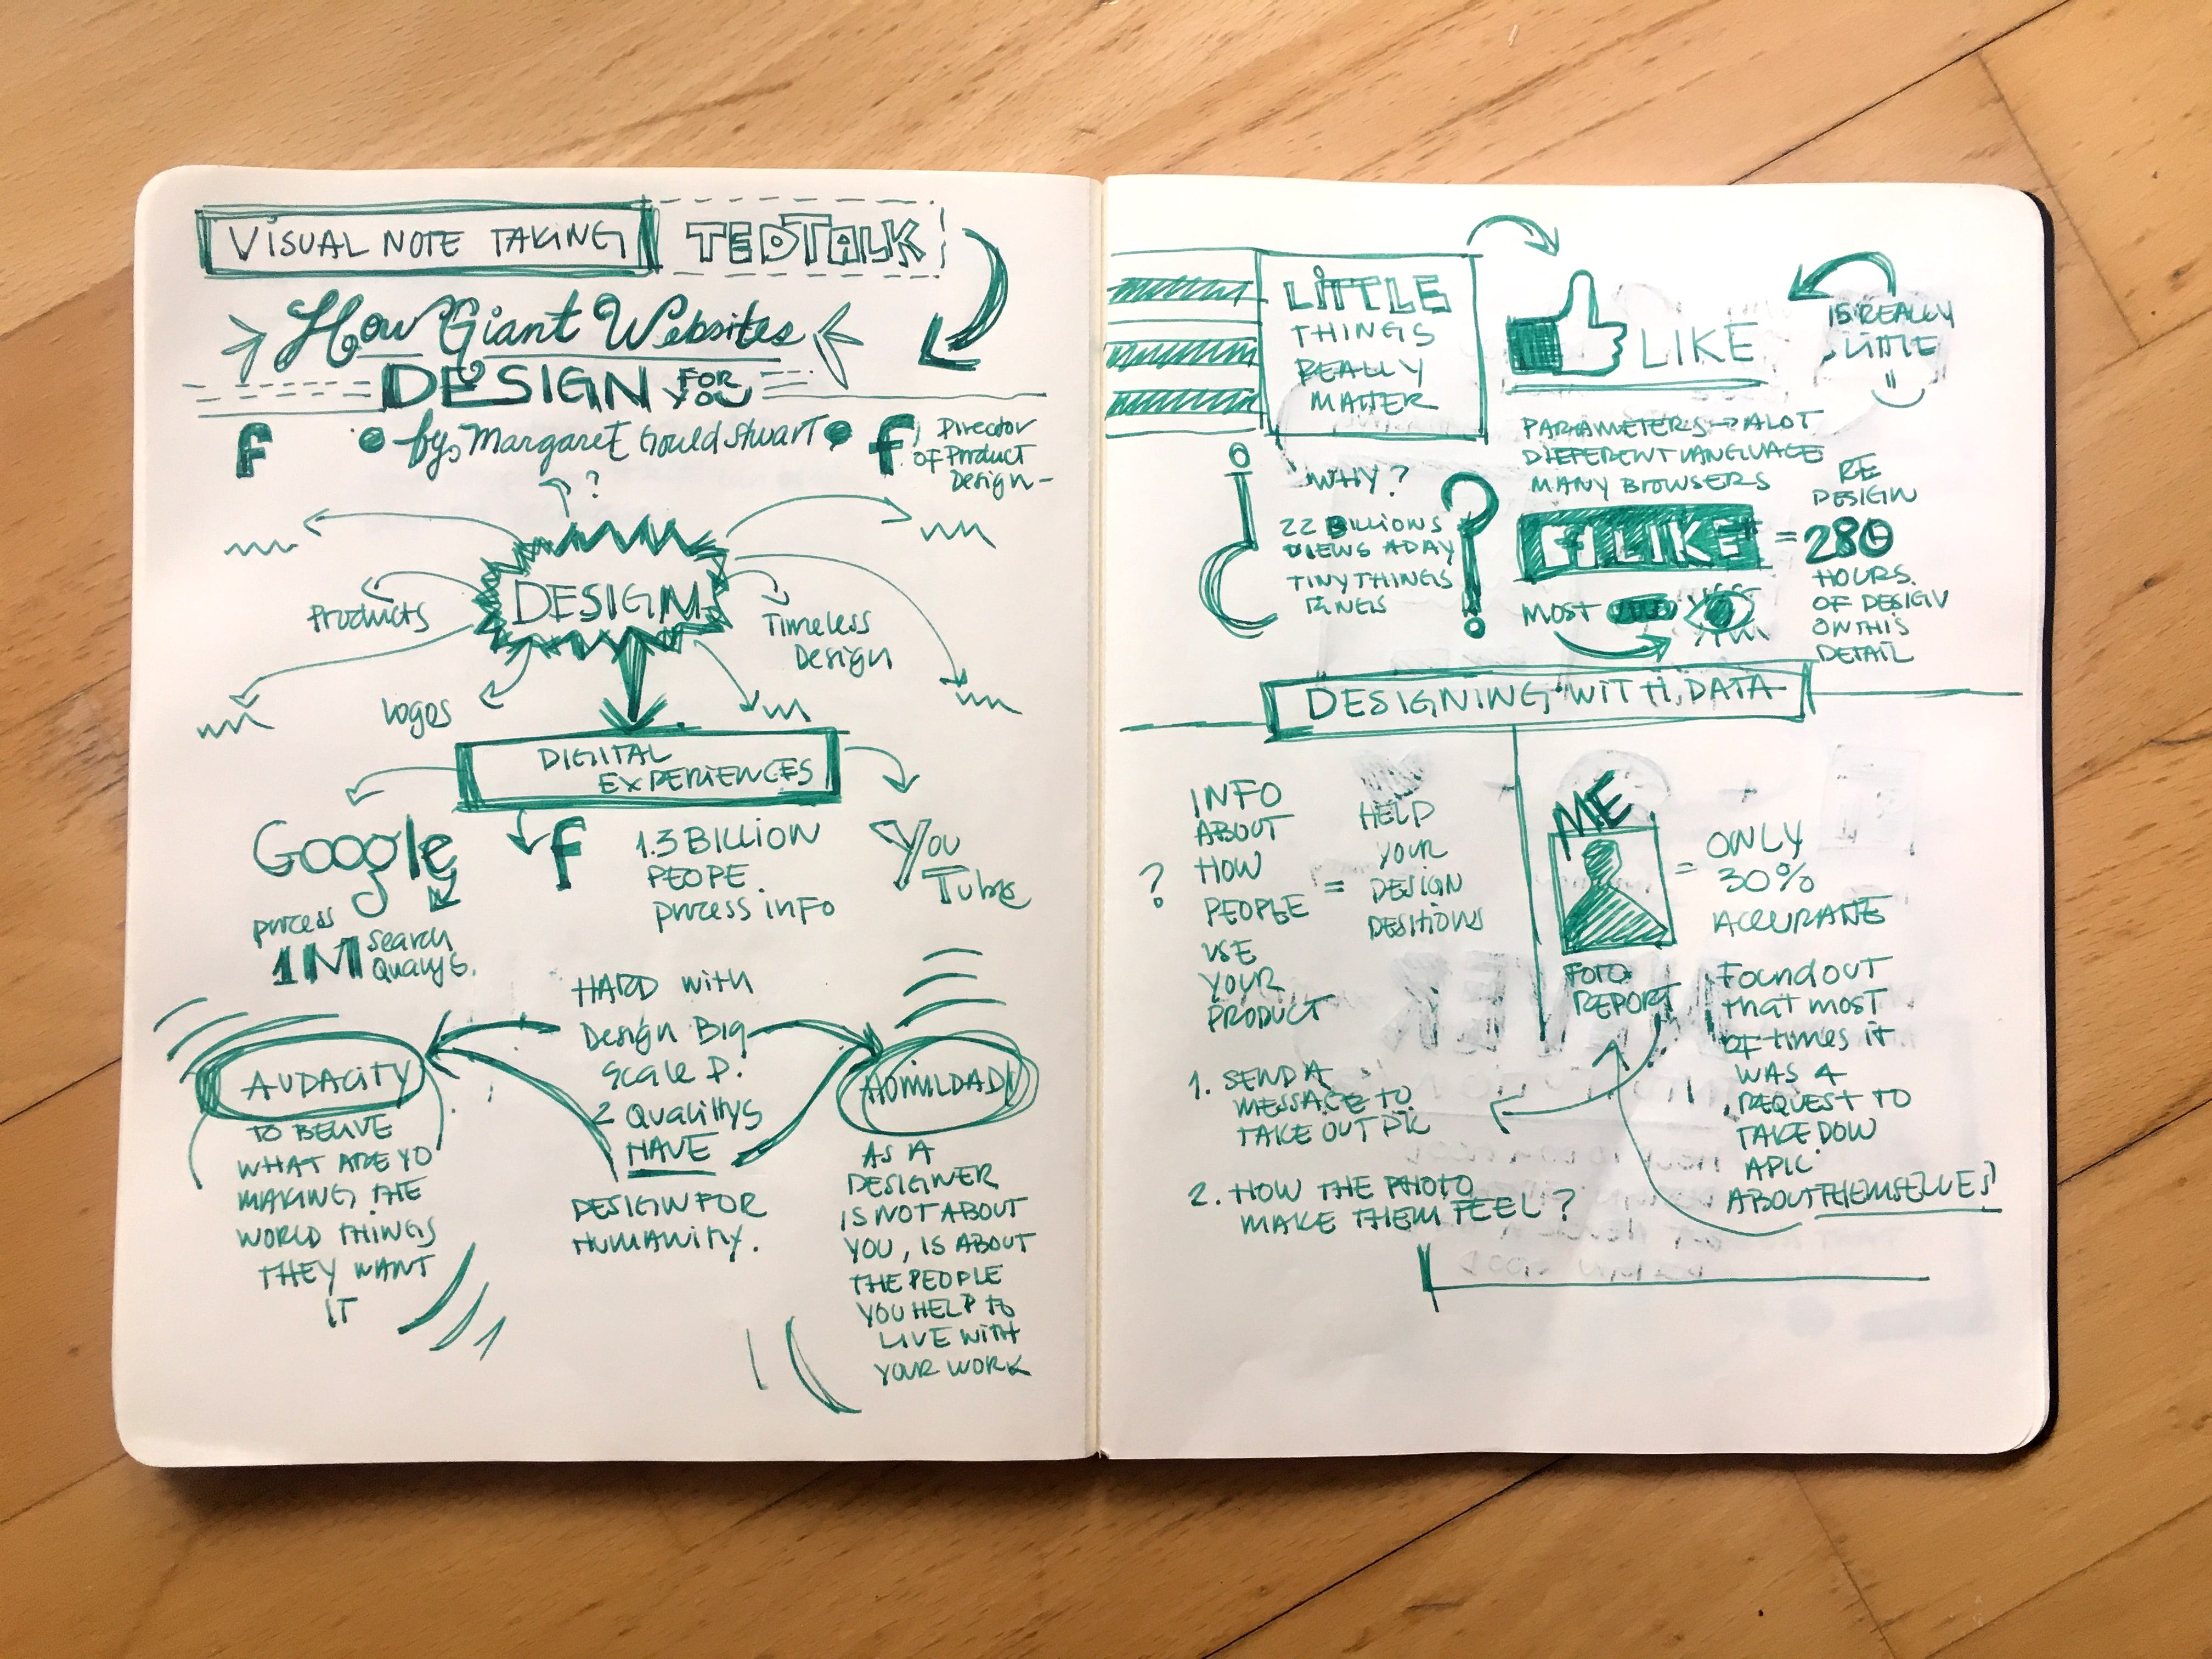 VISUAL NOTE TAKING
TEDTALK
How Giant Websites
DESIGN FOR YOU
f
by, Margaret Gould Stuart
f, Director
OF Product
Design -
?
DESIGN
Products
Timeless
Design
logos
DIGITAL
EXPERIENCES
Google
process
1M search
Quarys.
f
1.3 BILLION
PEOPE
process info
You
Tube
HARD with
Design Big
Scale P.
2 Qualitys
HAVE
DESIGN FOR
HUMANITY.
AUDACITY
TO BELIVE
WHAT ARE YO
MAKING, THE
WORLD THINGS
THEY WANT
IT
HOMILDAD
AS A
DESIGNER
IS NOT ABOUT
YOU, IS ABOUT
THE PEOPLE
YOU HELP to
LIVE WITH
YOUR WORK
LITTLE
THINGS
REALLY
MATTER
LIKE
IS REALLY
LITTLE
WHY?
22 BILLIONS
VIEWS A DAY
TINY THINGS
?
PARAMETERS → ALOT
DIFFERENT LANGUAGE
MANY BROWSERS
f LIKE =
MOST
RE
DESIGN
280
HOURS.
OF DESIGN
ON THIS
DETAIL
DESIGNING WITH DATA
?
INFO
ABOUT
HOW
PEOPLE
USE
YOUR
PRODUCT
=
HELP
YOUR
DESIGN
DESITIONS
ME
FOTO
REPORT
= ONLY
30%
ACCURANE
Found out
that most
of times it
WAS A
REQUEST TO
TAKE DOW
A PIC.
ABOUT THEMSELVES
1. SEND A
MESSAGE TO
TAKE OUT PIC
2. HOW THE PHOTO
MAKE THEM FEEL?